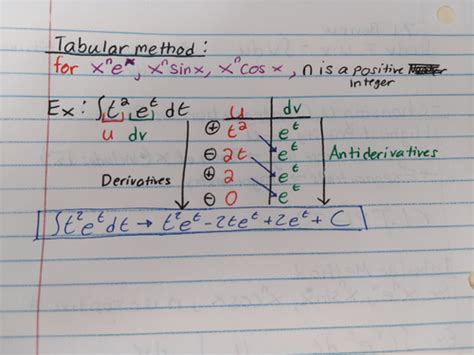 Tabular method:
for xⁿeˣ, xⁿsinx, xⁿcosx, n is a positive
integer
Ex: ∫t² eᵗ dt
u dv
u dv
⊕ t² eᵗ
⊖ 2t eᵗ
⊕ 2 eᵗ
⊖ 0 eᵗ
Derivatives
Antiderivatives
∫t²eᵗdt → t²eᵗ - 2teᵗ + 2eᵗ + C